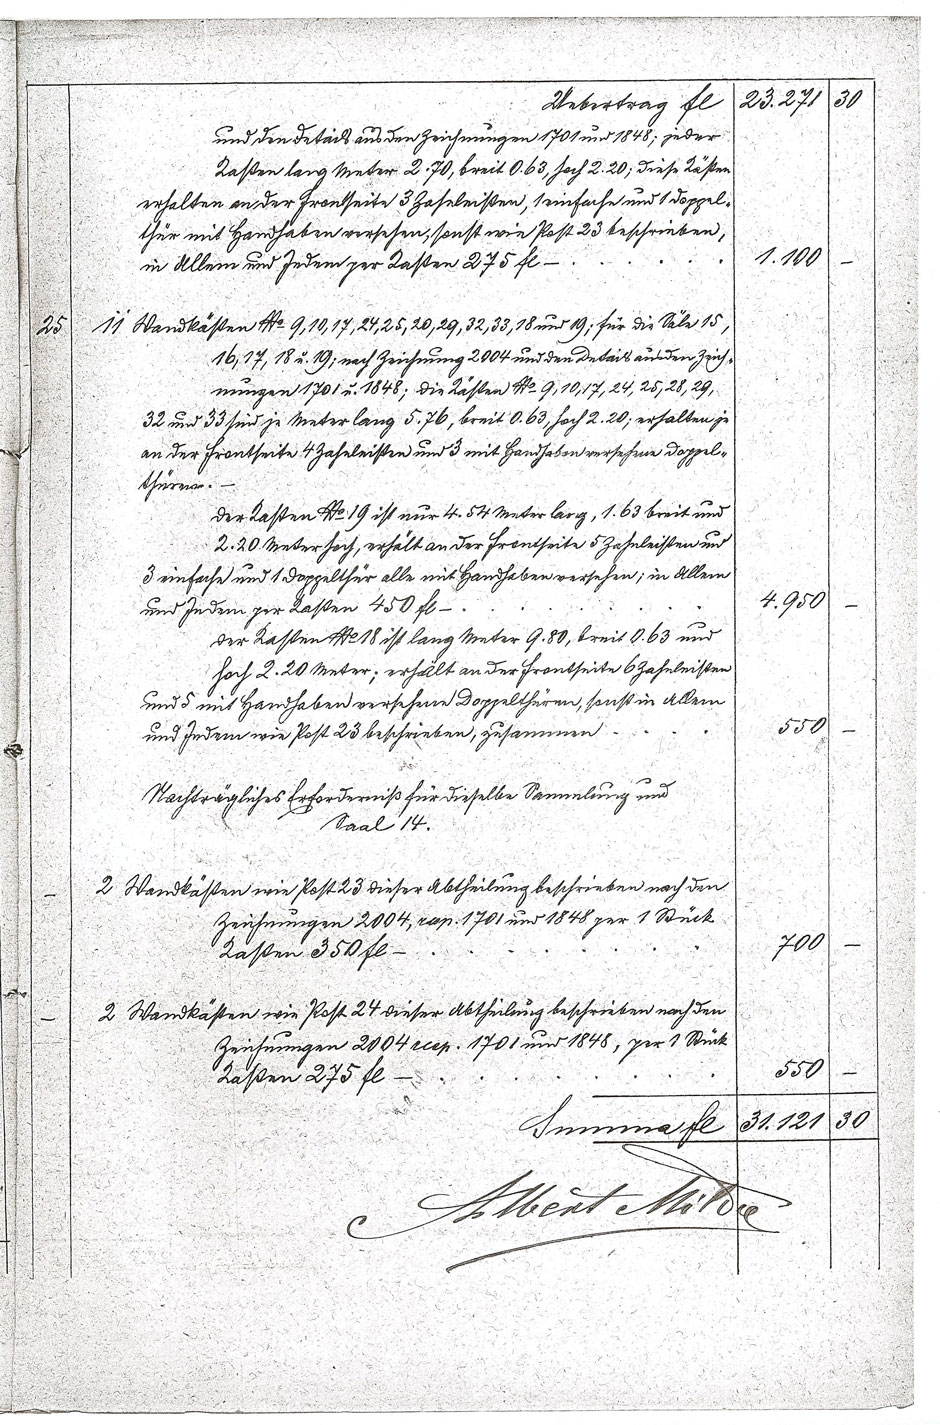 Uebertrag fl 23.271 30
und den Details aus den Zeichnungen 1701 und 1848; jeder
Kasten lang Meter 2.70, breit 0.63, hoch 2.20; diese Kästen
erhalten an der Frontseite 3 Zahnleisten, 1 einfache und 1 Doppel-
thür mit Handhaben versehen, sonst wie Post 23 beschrieben,
in Allem und Jedem per Kasten 275 fl — 1.100 —
25 11 Wandkästen No 9, 10, 17, 24, 25, 20, 29, 32, 33, 18 und 19; für die Säle 15,
16, 17, 18 u. 19; nach Zeichnung 2004 und den Details aus den Zeich-
nungen 1701 u. 1848; die Kästen No 9, 10, 17, 24, 25, 28, 29,
32 und 33 sind je Meter lang 5.76, breit 0.63, hoch 2.20; erhalten je
an der Frontseite 4 Zahnleisten und 3 mit Handhaben versehene Doppel-
thüren. —
Der Kasten No 19 ist nur 4.54 Meter lang, 1.63 breit und
2.20 Meter hoch, erhält an der Frontseite 5 Zahnleisten und
3 einfache und 1 Doppelthür alle mit Handhaben versehen; in Allem
und Jedem per Kasten 450 fl — 4.950 —
Der Kasten No 18 ist lang Meter 9.80, breit 0.63 und
hoch 2.20 Meter; erhält an der Frontseite 6 Zahnleisten
und 5 mit Handhaben versehene Doppelthüren, sonst in Allem
und Jedem wie Post 23 beschrieben, zusammen 550 —
Nachträgliches Erforderniß für dieselbe Sammlung und
Saal 14.
— 2 Wandkästen wie Post 23 dieser Abtheilung beschrieben nach den
Zeichnungen 2004, resp. 1701 und 1848 per 1 Stück
Kasten 350 fl — 700 —
— 2 Wandkästen wie Post 24 dieser Abtheilung beschrieben nach den
Zeichnungen 2004 resp. 1701 und 1848, per 1 Stück
Kasten 275 fl — 550 —
Summa fl 31.121 30
Albert Milde